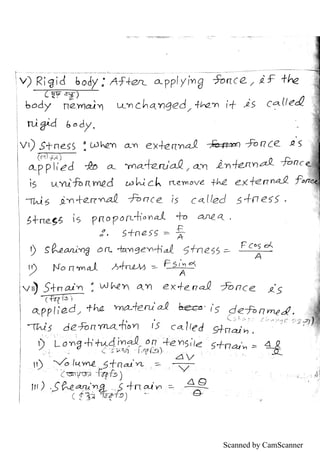 v) Rigid body: After applying force, if the
body remain unchanged, then it is called
rigid body.
vi) Stress: When an external force is
applied to a material, an internal force
is uniformed which remove the external force
This internal force is called stress.
Stress is proportional to area.
∴ stress = F/A
i) Shearing or tangential stress = F cos α/A
ii) Normal stress = F sin α/A
vii) Strain: When an external force is
applied, the material is deformed.
This deformation is called strain.
i) Longtitudinal or tensile strain = Δl/l
ii) Volume strain = ΔV/V
iii) Shearing strain = Δθ/θ
Scanned by CamScanner